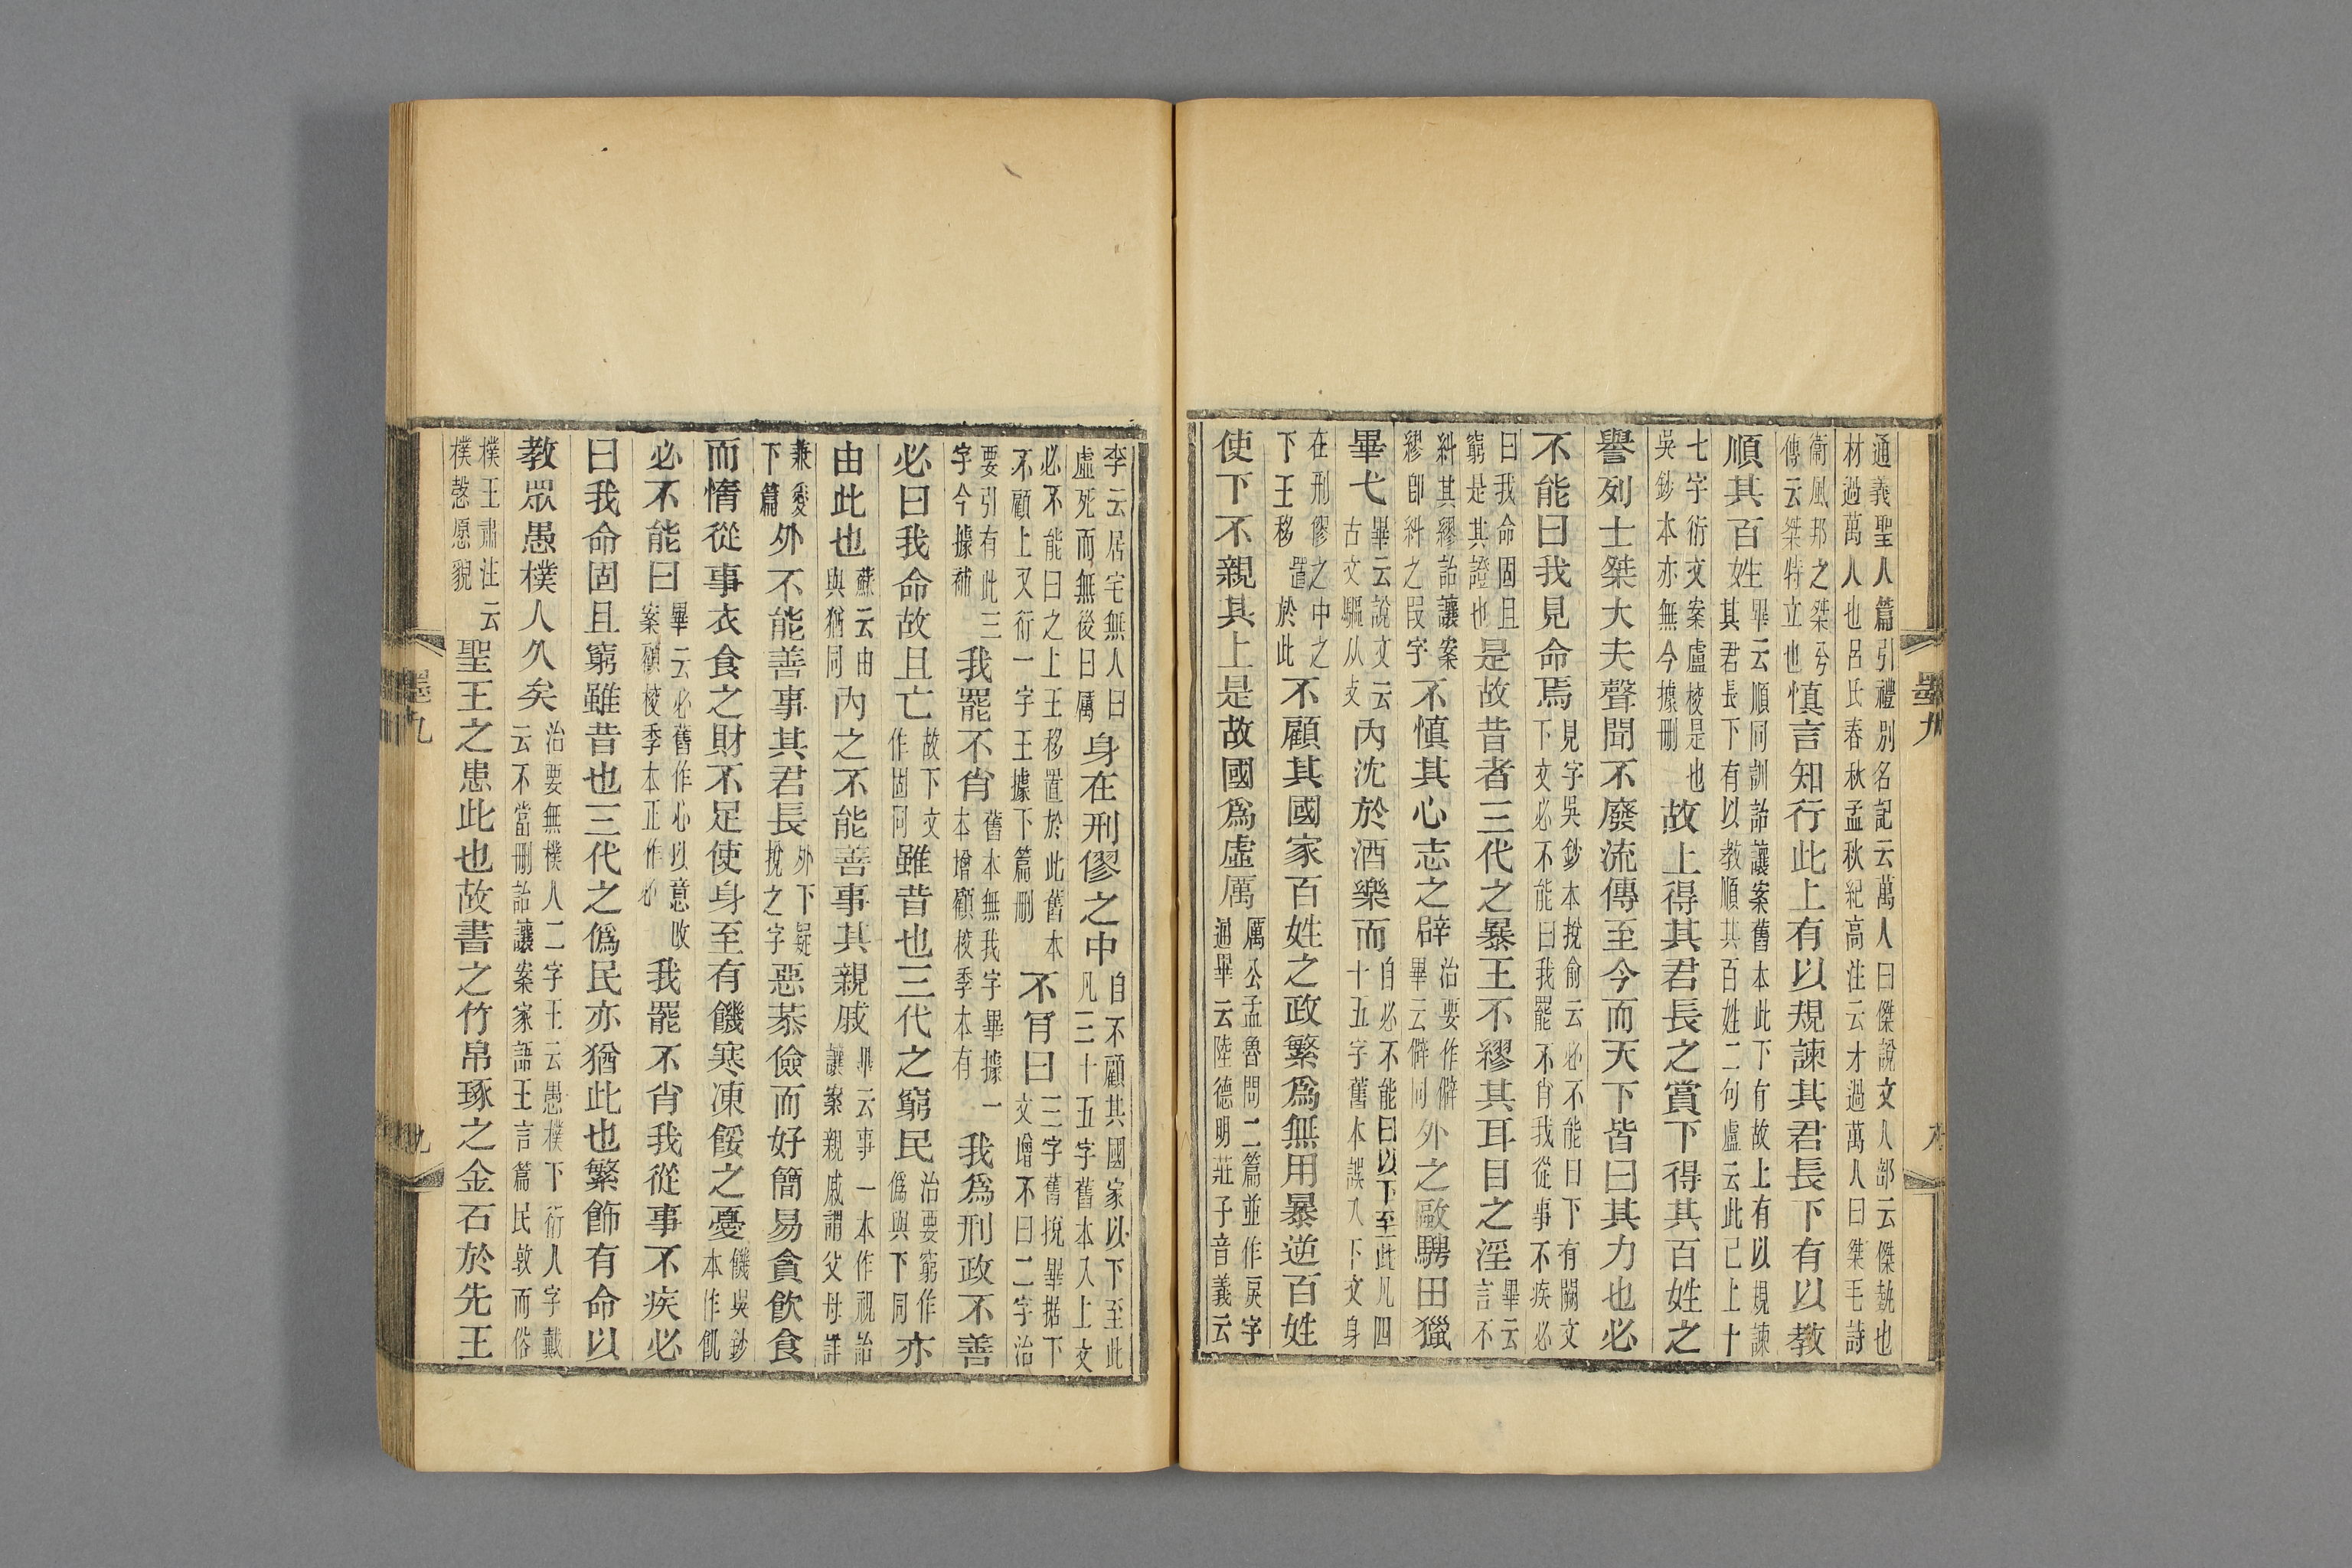 通義聖人篇引禮別名記云萬人曰傑說文人部云傑埶也
材過萬人也呂氏春秋孟秋紀高注云才過萬人曰桀毛詩
衛風邦之桀兮傳云桀特立也慎言知行此上有以規諫其君長下有以教
順其百姓畢云順同訓詒讓案舊本此下有故上有以規諫其君長下有以教順其百姓二句盧云此已上十
七字衍文案盧校是也吳鈔本亦無今據刪故上得其君長之賞下得其百姓之
譽列士桀大夫聲聞不廢流傳至今而天下皆曰其力也必
不能曰我見命焉見字吳鈔本挩俞云必不能曰下有闕文下文必不能曰我罷不肖我從事不疾必
曰我命固且窮是其證也是故昔者三代之暴王不繆其耳目之淫畢云言不
糾其繆詒讓案繆卽糾之叚字不慎其心志之辟治要作僻畢云僻同外之敺騁田獵
畢弋畢云說文云古文驅从攴內沈於酒樂而自必不能曰以下至此凡四十五字舊本誤入下文身
在刑僇之中之下王移置於此不顧其國家百姓之政繁爲無用暴逆百姓
使下不親其上是故國爲虛厲厲公孟魯問二篇並作戾字通畢云陸德明莊子音義云
李云居宅無人曰虛死而無後曰厲身在刑僇之中自不顧其國家以下至此凡三十五字舊本入上文
必不能曰之上王移置於此舊本不顧上又衍一字王據下篇刪不肯曰三字舊挩畢據下文增不曰二字治
要引有此三字今據補我罷不肖舊本無我字畢據一本增顧校季本有我爲刑政不善
必曰我命故且亡故下文作固同雖昔也三代之窮民治要窮作僞與下同亦
由此也蘇云由與猶同內之不能善事其親戚畢云事一本作視詒讓案親戚謂父母詳
兼愛下篇外不能善事其君長外下疑挩之字惡恭儉而好簡易貪飲食
而惰從事衣食之財不足使身至有饑寒凍餒之憂饑吳鈔本作飢
必不能曰畢云必舊作心以意改案顧校季本正作必我罷不肖我從事不疾必
曰我命固且窮雖昔也三代之僞民亦猶此也繁飾有命以
教眾愚樸人久矣治要無樸人二字王云愚樸下衍人字戴云不當刪詒讓案家語王言篇民敦而俗
樸王肅注云樸愨愿貌聖王之患此也故書之竹帛琢之金石於先王
墨九
九